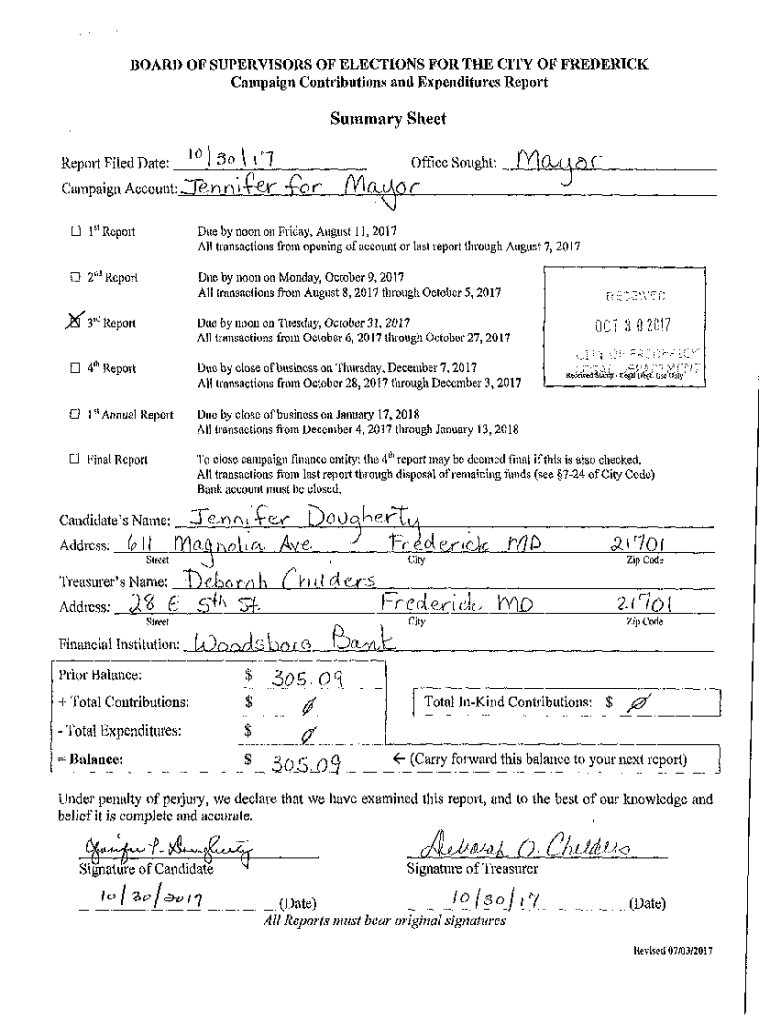 BOARD OF SUPERVISORS OF ELECTIONS FOR THE CITY OF FREDERICK
Campaign Contributions and Expenditures Report
Summary Sheet
Report Filed Date: 10/30/17 Office Sought: Mayor
Campaign Account: Jennifer for Mayor
☐ 1st Report Due by noon on Friday, August 11, 2017
All transactions from opening of account or last report through August 7, 2017
☐ 2nd Report Due by noon on Monday, October 9, 2017
All transactions from August 8, 2017 through October 5, 2017
RECEIVED
☒ 3rd Report Due by noon on Tuesday, October 31, 2017
All transactions from October 6, 2017 through October 27, 2017
OCT 30 2017
CITY OF FREDERICK
LEGAL DEPARTMENT
Received Stamp - Legal Dept. Use Only
☐ 4th Report Due by close of business on Thursday, December 7, 2017
All transactions from October 28, 2017 through December 3, 2017
☐ 1st Annual Report Due by close of business on January 17, 2018
All transactions from December 4, 2017 through January 13, 2018
☐ Final Report To close campaign finance entity: the 4th report may be deemed final if this is also checked.
All transactions from last report through disposal of remaining funds (see §7-24 of City Code)
Bank account must be closed.
Candidate's Name: Jennifer Dougherty
Address: 611 Magnolia Ave Frederick MD 21701
Street City Zip Code
Treasurer's Name: Deborah Childers
Address: 28 E 5th St. Frederick MD 21701
Street City Zip Code
Financial Institution: Woodsboro Bank
Prior Balance: $ 305.09
+ Total Contributions: $ ∅ Total In-Kind Contributions: $ ∅
- Total Expenditures: $ ∅
= Balance: $ 305.09 ← (Carry forward this balance to your next report)
Under penalty of perjury, we declare that we have examined this report, and to the best of our knowledge and
belief it is complete and accurate.
Jennifer P. Dougherty Deborah O. Childers
Signature of Candidate Signature of Treasurer
10/30/2017 (Date) 10/30/17 (Date)
All Reports must bear original signatures
Revised 07/03/2017